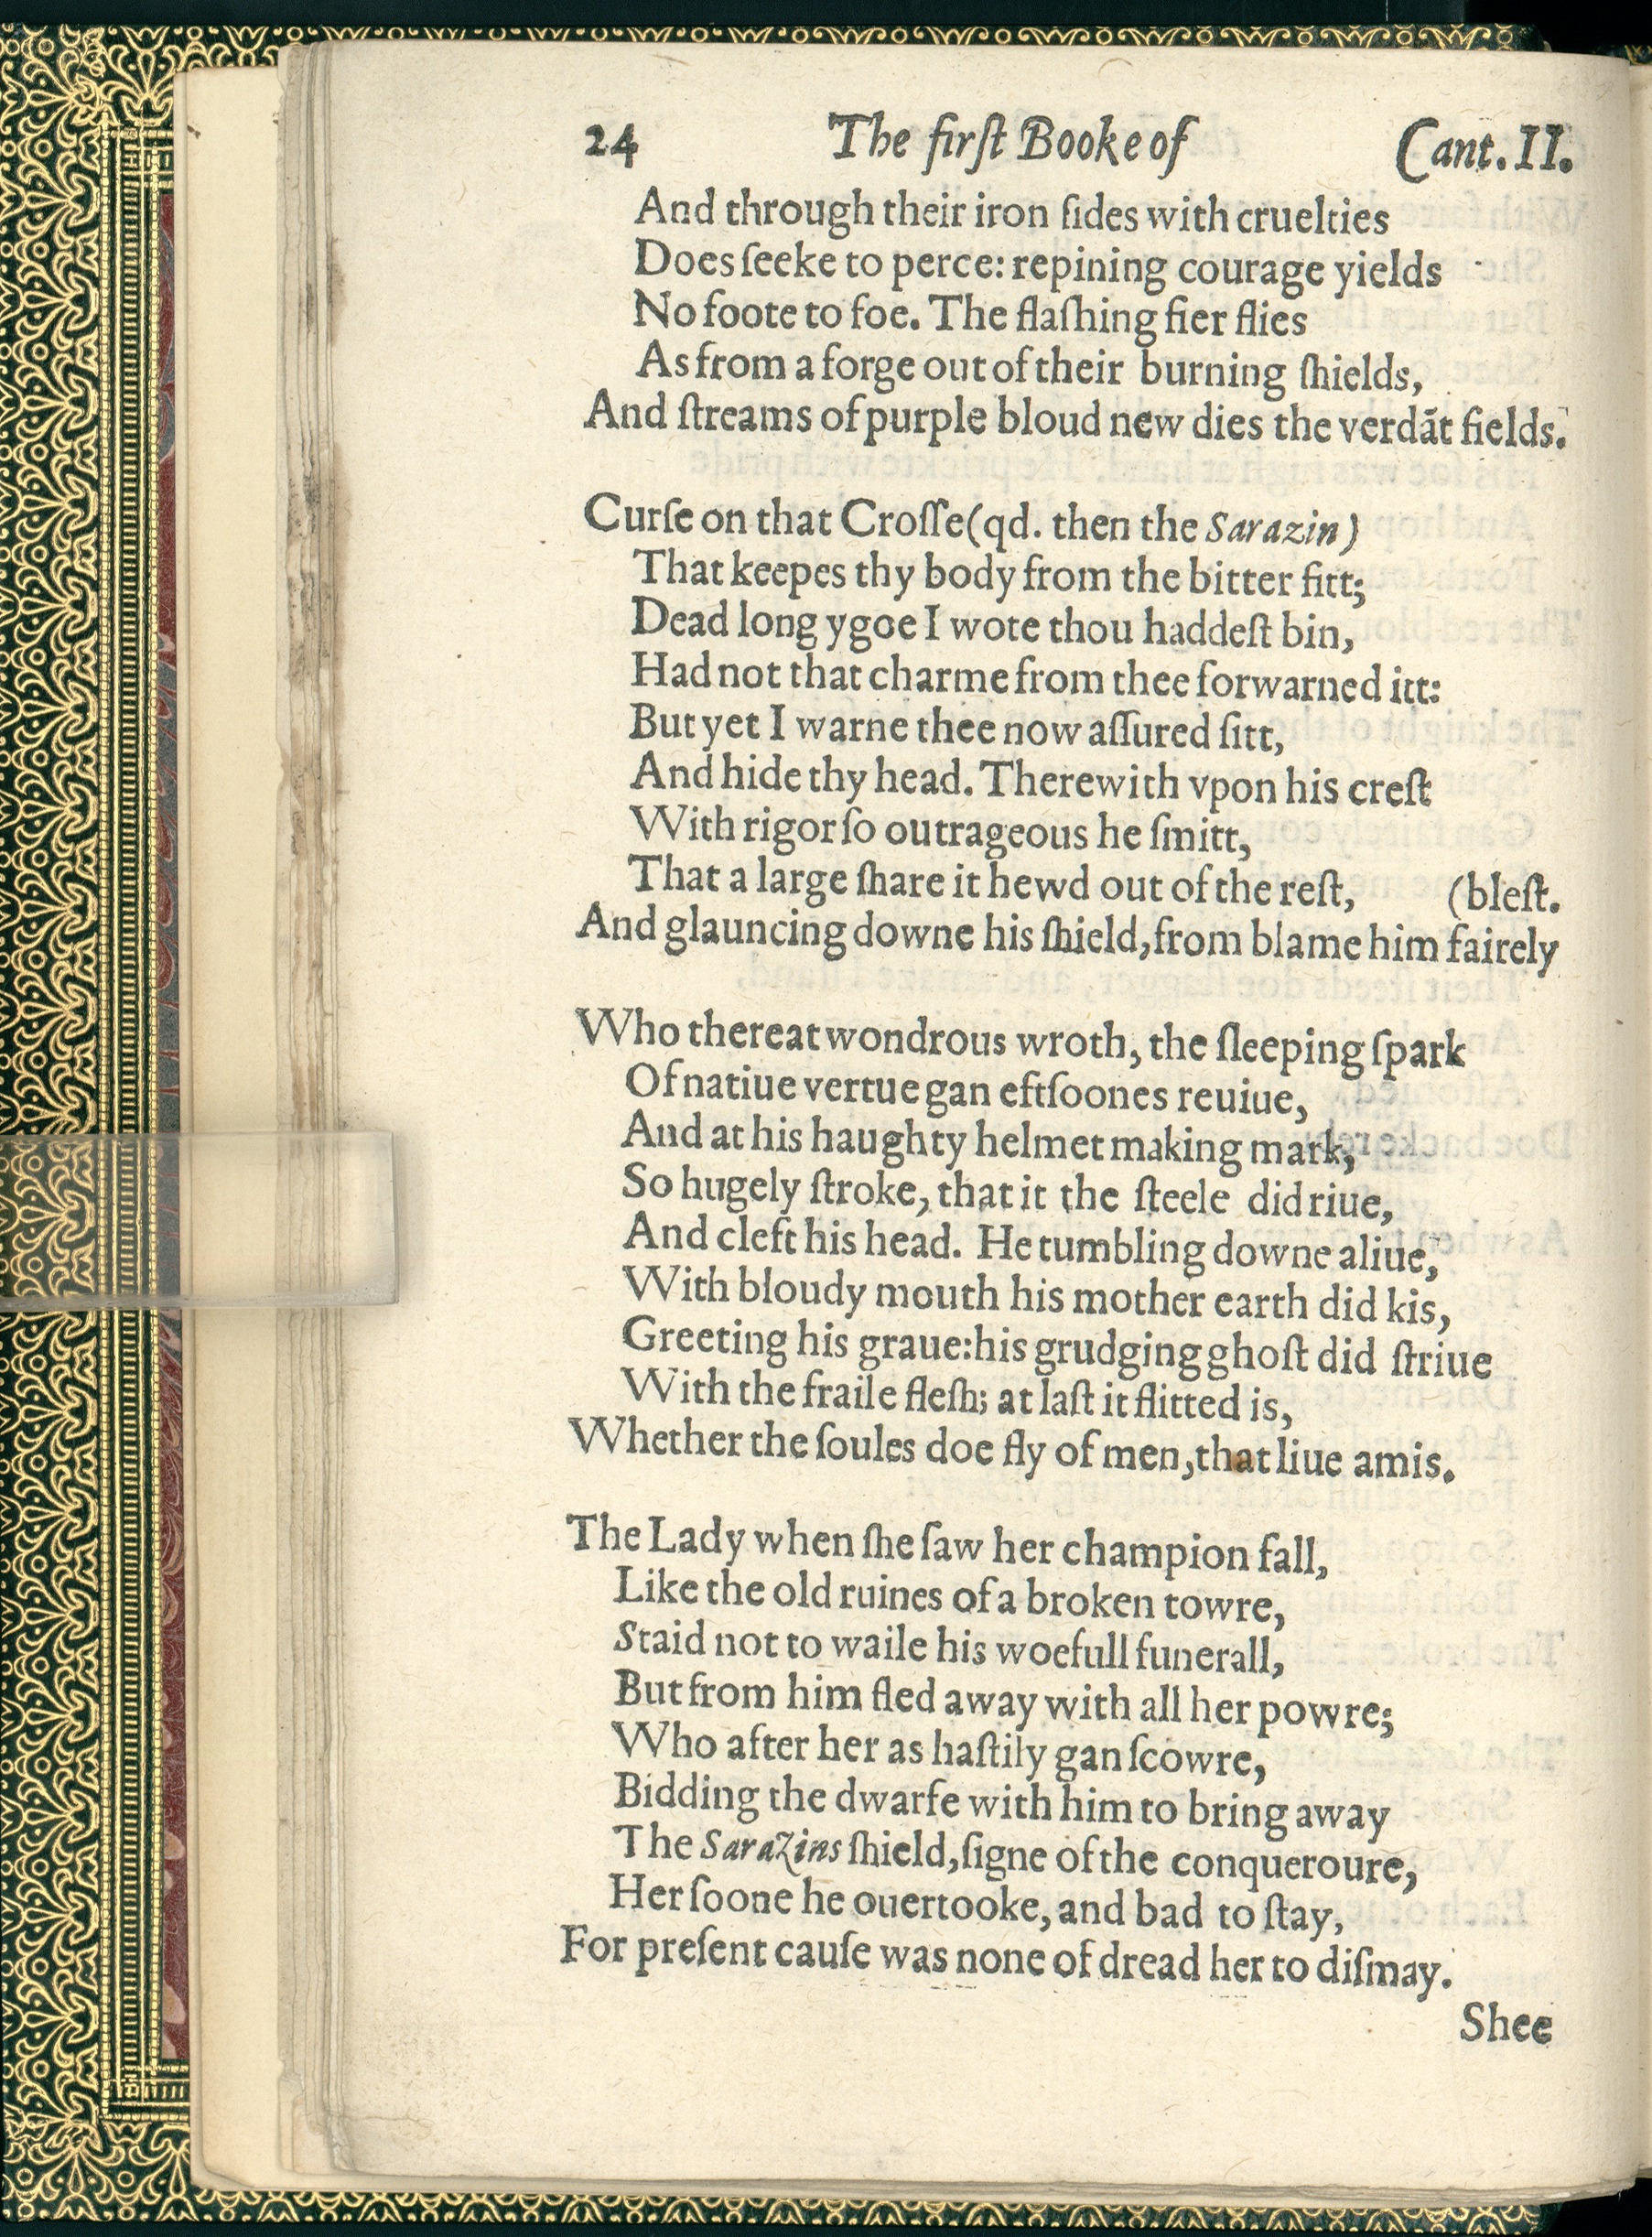 24 The firſt Booke of Cant. II.
And through their iron ſides with cruelties
Does ſeeke to perce: repining courage yields
No foote to foe. The flaſhing fier flies
As from a forge out of their burning ſhields,
And ſtreams of purple bloud new dies the verdãt fields.
Curſe on that Croſſe (qd. then the Sarazin)
That keepes thy body from the bitter fitt;
Dead long ygoe I wote thou haddeſt bin,
Had not that charme from thee forwarned itt:
But yet I warne thee now aſſured ſitt,
And hide thy head. Therewith vpon his creſt
With rigor ſo outrageous he ſmitt,
That a large ſhare it hewd out of the reſt, (bleſt.
And glauncing downe his ſhield, from blame him fairely
Who thereat wondrous wroth, the ſleeping ſpark
Of natiue vertue gan eftſoones reuiue,
And at his haughty helmet making mark,
So hugely ſtroke, that it the ſteele did riue,
And cleft his head. He tumbling downe aliue,
With bloudy mouth his mother earth did kis,
Greeting his graue: his grudging ghoſt did ſtriue
With the fraile fleſh; at laſt it flitted is,
Whether the ſoules doe fly of men, that liue amis.
The Lady when ſhe ſaw her champion fall,
Like the old ruines of a broken towre,
Staid not to waile his woefull funerall,
But from him fled away with all her powre;
Who after her as haſtily gan ſcowre,
Bidding the dwarfe with him to bring away
The Sarazins ſhield, ſigne of the conqueroure,
Her ſoone he ouertooke, and bad to ſtay,
For preſent cauſe was none of dread her to diſmay.
Shee